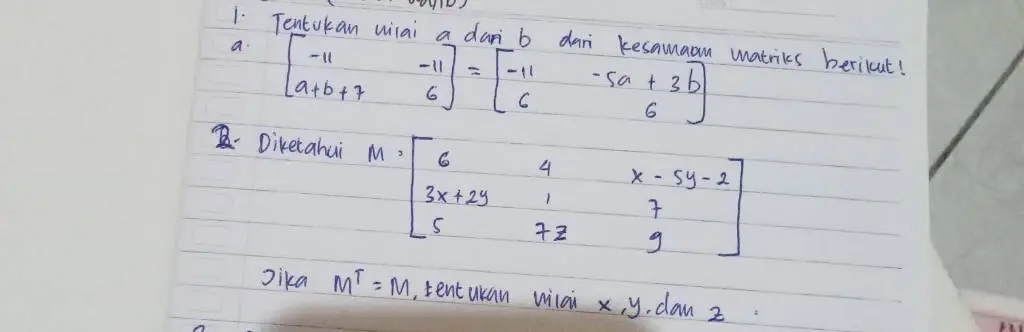 1. Tentukan nilai a dan b dari kesamaan matriks berikut!
a. [ -11 -11 ] = [ -11 -5a + 3b ]
[ a+b+7 6 ] [ 6 6 ]
2. Diketahui M = [ 6 4 x - 5y - 2 ]
[ 3x+2y 1 7 ]
[ 5 7z 9 ]
Jika Mᵀ = M, tentukan nilai x, y, dan z .